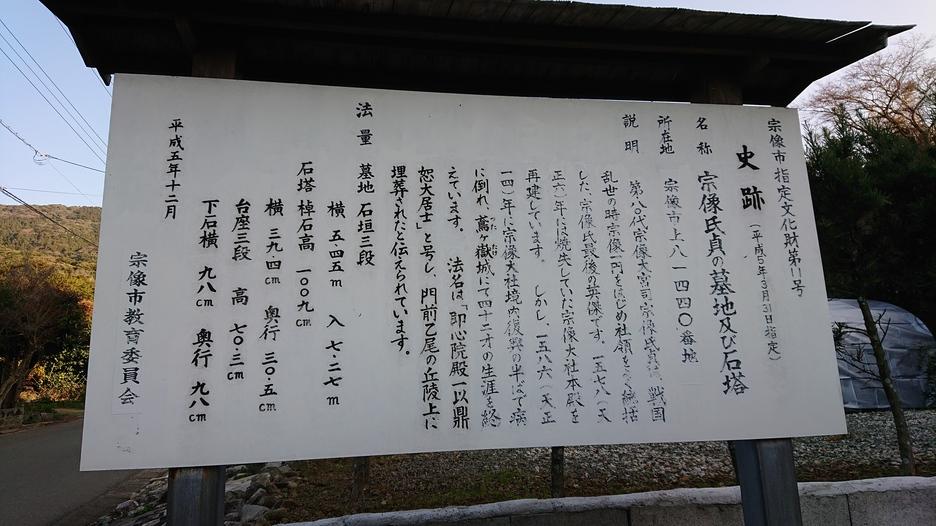 宗像市指定文化財第11号
史跡（平成5年3月31日指定）
名称　宗像氏貞の墓地及び石塔
所在地　宗像市上八一四四〇番地
説明　第八〇代宗像大宮司宗像氏貞は、戦国
乱世の時宗像一円をはじめ社領をよく統括
した、宗像氏最後の英傑です。一五七八（天
正六）年には焼失していた宗像大社本殿を
再建しています。しかし、一五八六（天正
一四）年に宗像大社境内復興の半ばで病
に倒れ、蔦ヶ嶽城にて四十二才の生涯を終
えています。法名は「即心院殿一以鼎
恕大居士」と号し、門前乙尾の丘陵上に
埋葬されたと伝えられています。
法量　墓地　石垣三段
横　五・四五m　入　七・二七m
石塔　棹石高　一〇九cm
横　三九・四cm　奥行　三〇・五cm
台座三段　高　七〇・三cm
下石横　九八cm　奥行　九八cm
平成五年十二月
宗像市教育委員会